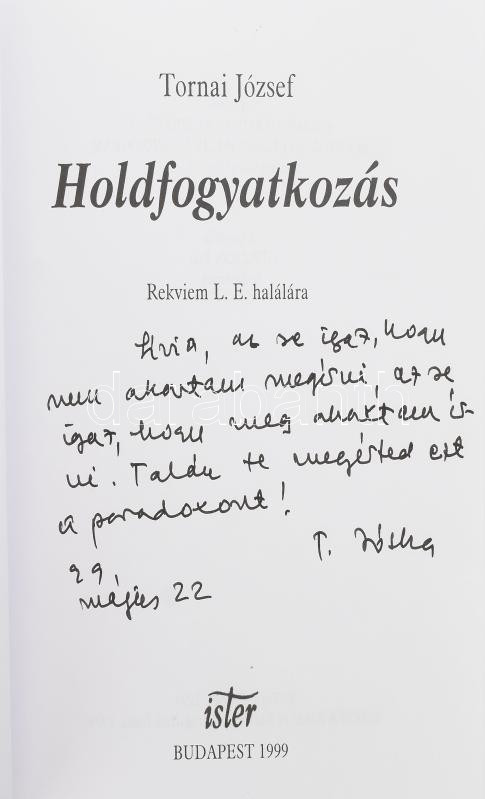 Tornai József
Holdfogyatkozás
Rekviem L. E. halálára
Livia, az se igaz, hogy
nem akartam megírni, az se
igaz, hogy meg akartam ír-
ni. Talán te megérted ezt
a paradoxont!
T. Jóska
99,
május 22
darabanth
ister
BUDAPEST 1999